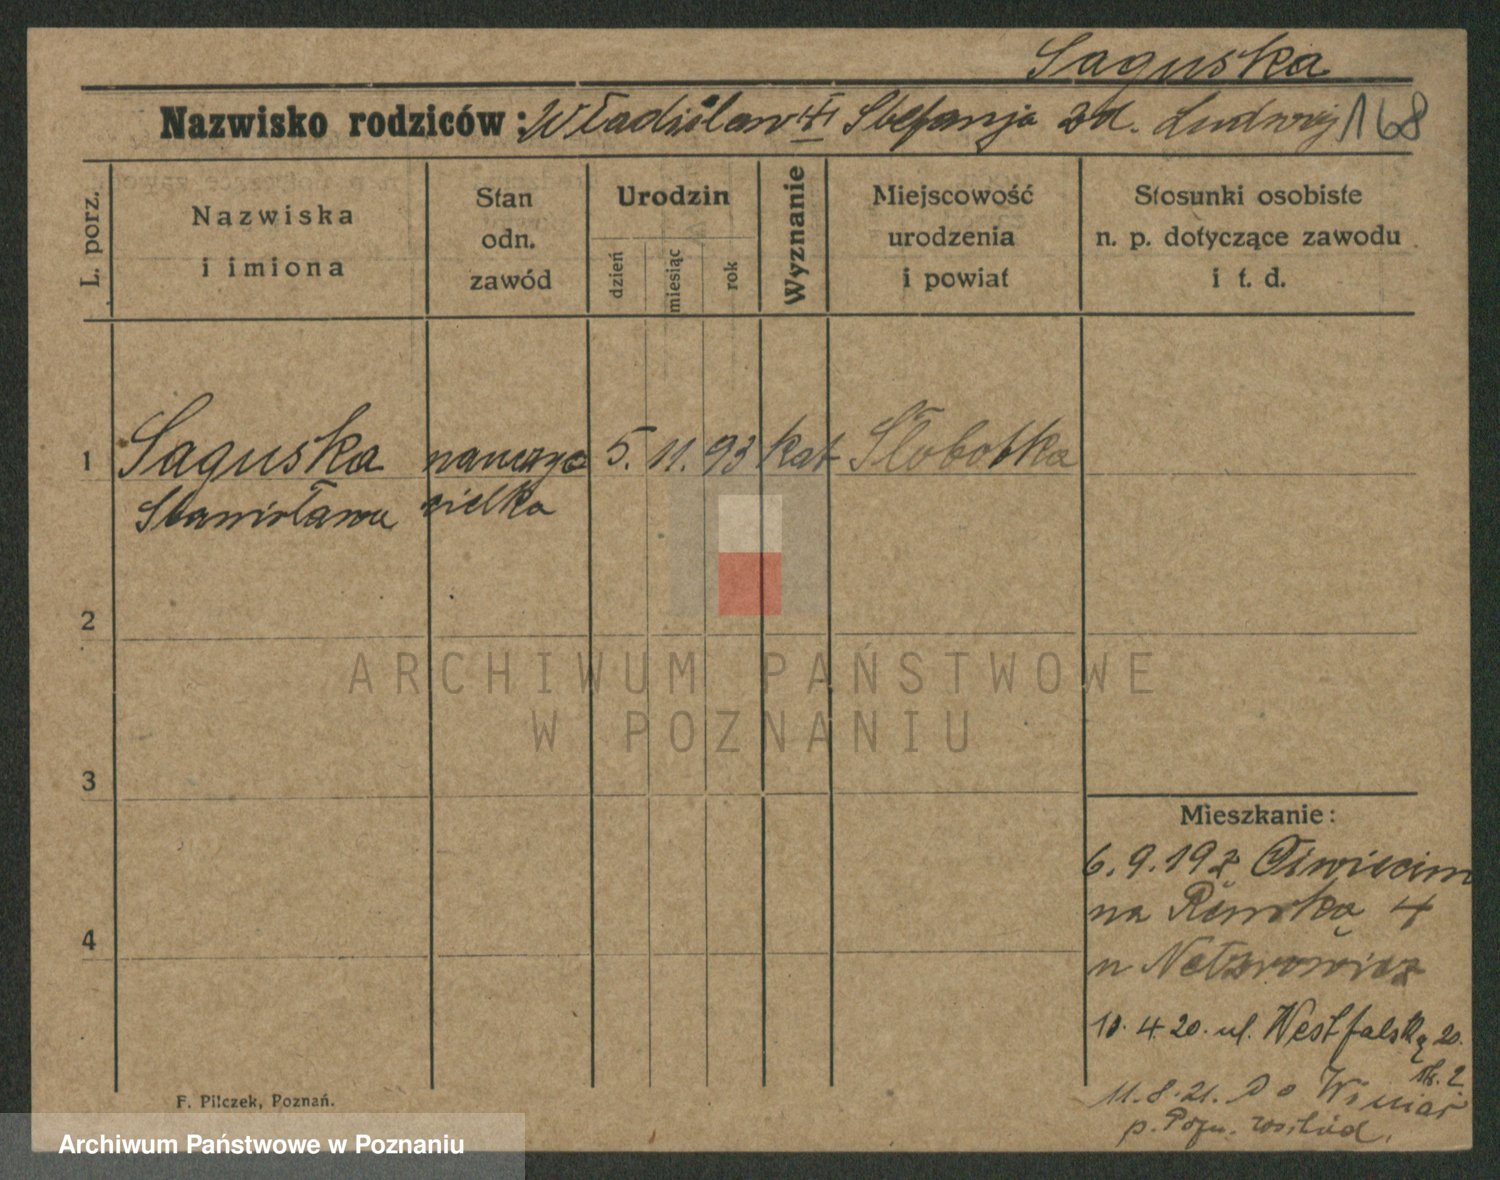 Saguska
Nazwisko rodziców: Władisław Stefanja zd. Ludwig 168
L. porz.
Nazwiska
i imiona
Stan
odn.
zawód
Urodzin
dzień
miesiąc
rok
Wyznanie
Miejscowość
urodzenia
i powiat
Stosunki osobiste
n. p. dotyczące zawodu
i t. d.
1 Saguska nauczyc 5. 11. 93 kat Słobotka
Stanisława ielka
2
ARCHIWUM PAŃSTWOWE
W POZNANIU
3
Mieszkanie:
6.9.19 z Oświecim
na Rynską 4
4
u
10.4.20. ul. Westfalską 20.
m. 2
11.8.21. Do Winiar
p. Pozn. wschód.
F. Pilczek, Poznań.
Archiwum Państwowe w Poznaniu